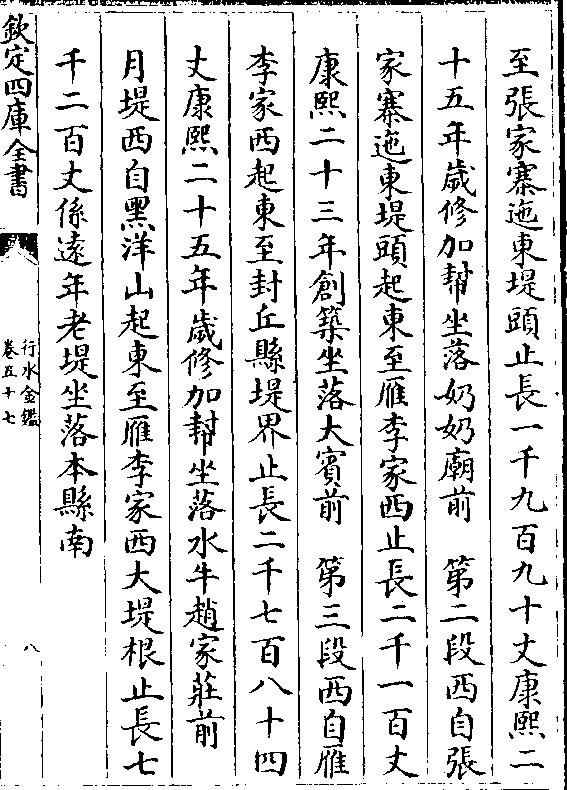 至張家寨迤東堤頭止長一千九百九十丈康熙二
十五年歲修加幇坐落奶奶廟前　第二段西自張
家寨迤東堤頭起東至雁李家西止長二千一百丈
康熙二十三年創築坐落大賓前　第三段西自雁
李家西起東至封丘縣堤界止長二千七百八十四
丈康熙二十五年歲修加幇坐落水牛趙家莊前
月堤西自黑洋山起東至雁李家西大堤根止長七
千二百丈係遠年老堤坐落本縣南
欽定四庫全書
行水金鑑
卷五十七
八